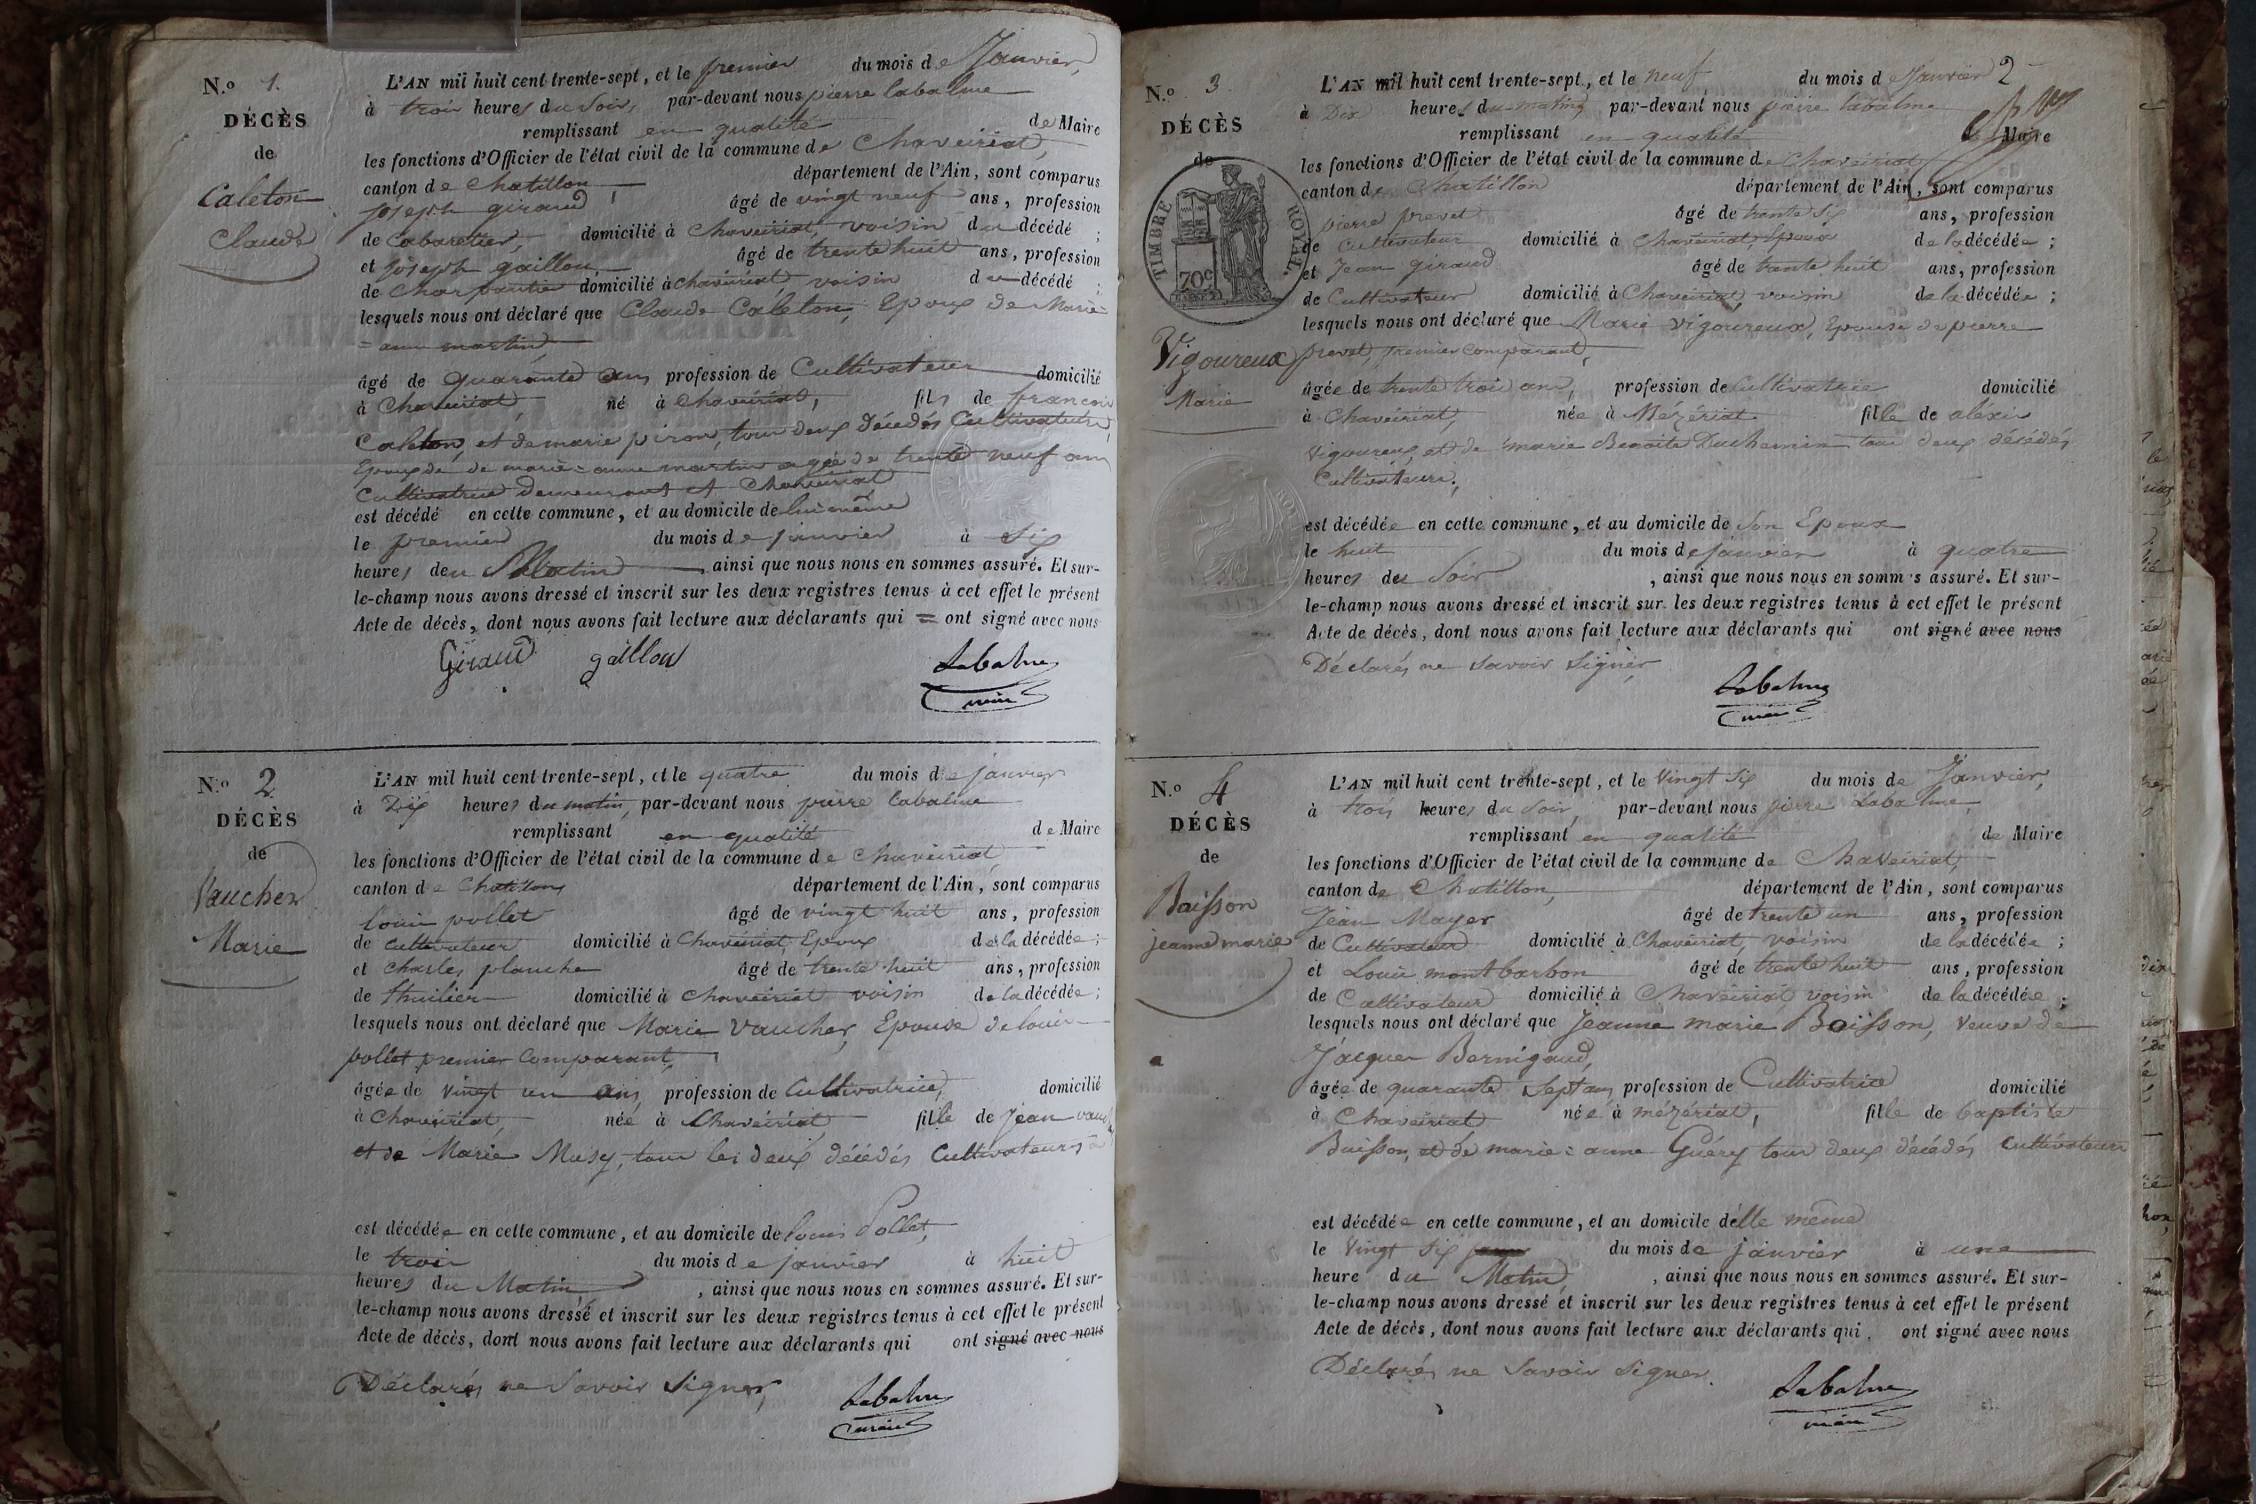 N.º 1.
DÉCÈS
de
Caleton
Claude
L'AN mil huit cent trente-sept, et le premier du mois de Janvier,
à trois heures du Soir, par-devant nous pierre labalme
remplissant en qualité de Maire
les fonctions d'Officier de l'état civil de la commune de Chaveiriat,
canton de Chatillon département de l'Ain, sont comparus
joseph giraud âgé de vingt neuf ans, profession
de Cabaretier, domicilié à Chaveiriat, voisin du décédé ;
et joseph gaillon âgé de trente huit ans, profession
de Charpantier domicilié à chaveiriat, voisin du décédé ;
lesquels nous ont déclaré que Claude Caleton, Epoux de Marie
= anne martin
âgé de quarante ans, profession de Cultivateur domicilié
à Chaveiriat, né à Chaveiriat, fils de francois
Caleton, et de marie piron, tous deux Décédés Cultivateurs,
Epoux de de marie = anne martin agée de trente neuf ans
Cultivatrice demeurant à Chaveiriat
est décédé en cette commune, et au domicile de lui même
le premier du mois de janvier à Six
heures deu Matin, ainsi que nous nous en sommes assuré. Et sur-
le-champ nous avons dressé et inscrit sur les deux registres tenus à cet effet le présent
Acte de décès, dont nous avons fait lecture aux déclarants qui = ont signé avec nous
Giraud gaillon Labalme
maire
N.º 2
DÉCÈS
de
Vaucher
Marie
L'AN mil huit cent trente-sept, et le quatre du mois de janvier
à Dix heures du matin, par-devant nous pierre labalme
remplissant en qualité de Maire
les fonctions d'Officier de l'état civil de la commune de Chaveiriat,
canton de Chatillon département de l'Ain, sont comparus
louis pollet âgé de vingt huit ans, profession
de cultivateur domicilié à Chaveiriat, Epoux de la décédée ;
et charles planche âgé de trente huit ans, profession
de thuilier domicilié à chaveiriat voisin de la décédée ;
lesquels nous ont déclaré que Marie Vaucher, Epouse de louis
pollet premier Comparant,
âgée de vingt un ans, profession de Cultivatrice, domicilié
à Chaveiriat, née à Chaveiriat fille de Jean
et de Marie Musy, tous les deux décédés Cultivateurs
est décédée en cette commune, et au domicile de louis Pollet,
le trois du mois de janvier à huit
heures du Matin, ainsi que nous nous en sommes assuré. Et sur-
le-champ nous avons dressé et inscrit sur les deux registres tenus à cet effet le présent
Acte de décès, dont nous avons fait lecture aux déclarants qui ont signé avec nous
Déclarés ne Savoir Signer,
Labalme
maire
2
N.º 3
DÉCÈS
de
TIMBRE ROYAL
70c
Vigoureux
Marie
L'AN mil huit cent trente-sept, et le neuf du mois de Janvier
à Dix heures du matin, par-devant nous pierre labalme
remplissant en qualité de Maire
les fonctions d'Officier de l'état civil de la commune de Chaveiriat,
canton de Chatillon département de l'Ain, sont comparus
pierre prevet âgé de trente Six ans, profession
de Cultivateur domicilié à Chaveiriat, Epoux de la décédée ;
et Jean Giraud âgé de trente huit ans, profession
de Cultivateur domicilié à Chaveiriat, voisin de la décédée ;
lesquels nous ont déclaré que Marie Vigoureux, Epouse de pierre
prevet, premier comparant,
âgée de trente trois ans, profession de Cultivatrice domicilié
à Chaveiriat, née à Mézériat fille de alexis
Vigoureux, et de marie Benoite Duchemin tous deux décédés
Cultivateurs,
est décédée en cette commune, et au domicile de Son Epoux
le huit du mois de janvier à quatre
heures deu Soir, ainsi que nous nous en sommes assuré. Et sur-
le-champ nous avons dressé et inscrit sur les deux registres tenus à cet effet le présent
Acte de décès, dont nous avons fait lecture aux déclarants qui ont signé avec nous
Déclarés ne Savoir Signer,
Labalme
maire
N.º 4
DÉCÈS
de
Baisson
jeanne marie
L'AN mil huit cent trente-sept, et le Vingt Six du mois de Janvier,
à trois heures du Soir, par-devant nous pierre Labalme,
remplissant en qualité de Maire
les fonctions d'Officier de l'état civil de la commune de Chaveiriat,
canton de Chatillon, département de l'Ain, sont comparus
Jean Mayer âgé de trente un ans, profession
de Cultivateur domicilié à Chaveiriat, voisin de la décédée ;
et Louis montbarbon âgé de trente huit ans, profession
de Cultivateur domicilié à Chaveiriat, voisin de la décédée ;
lesquels nous ont déclaré que Jeanne marie Boisson, veuve de
Jacques Bernigaud,
âgée de quarante Sept ans, profession de Cultivatrice domicilié
à Chaveiriat née à mézériat, fille de baptiste
Buisson, et de marie = anne Guéry tous deux décédés Cultivateurs
est décédée en cette commune, et au domicile d'elle même
le Vingt Six du mois de janvier à une
heure du Matin, ainsi que nous nous en sommes assuré. Et sur-
le-champ nous avons dressé et inscrit sur les deux registres tenus à cet effet le présent
Acte de décès, dont nous avons fait lecture aux déclarants qui ont signé avec nous
Déclarés ne Savoir Signer.
Labalme
maire